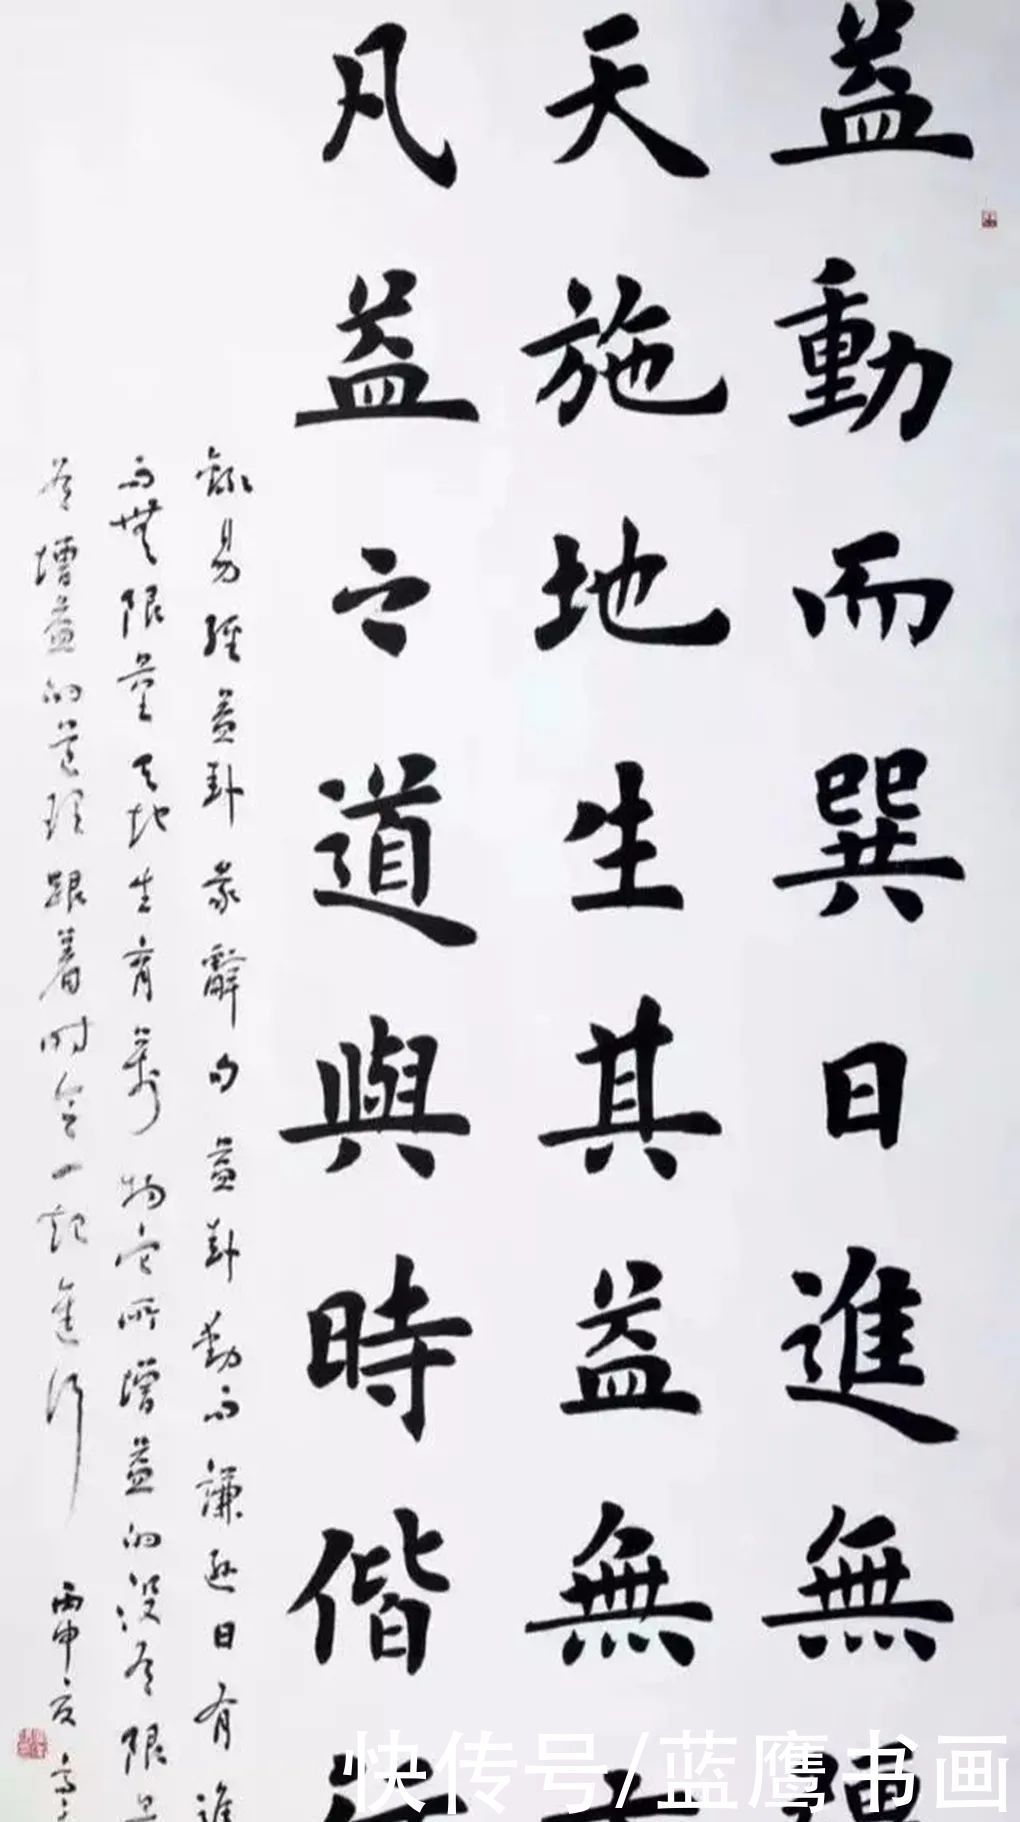 益動而巽日進無
天施地生其益無
凡益之道與時偕
錄易經益卦彖辭益卦動而謙遜日有進
而無限量天地生育萬物它所增益的没有限
增益的道理跟着時令一起進行
丙申夏
快传号/蓝鹰书画